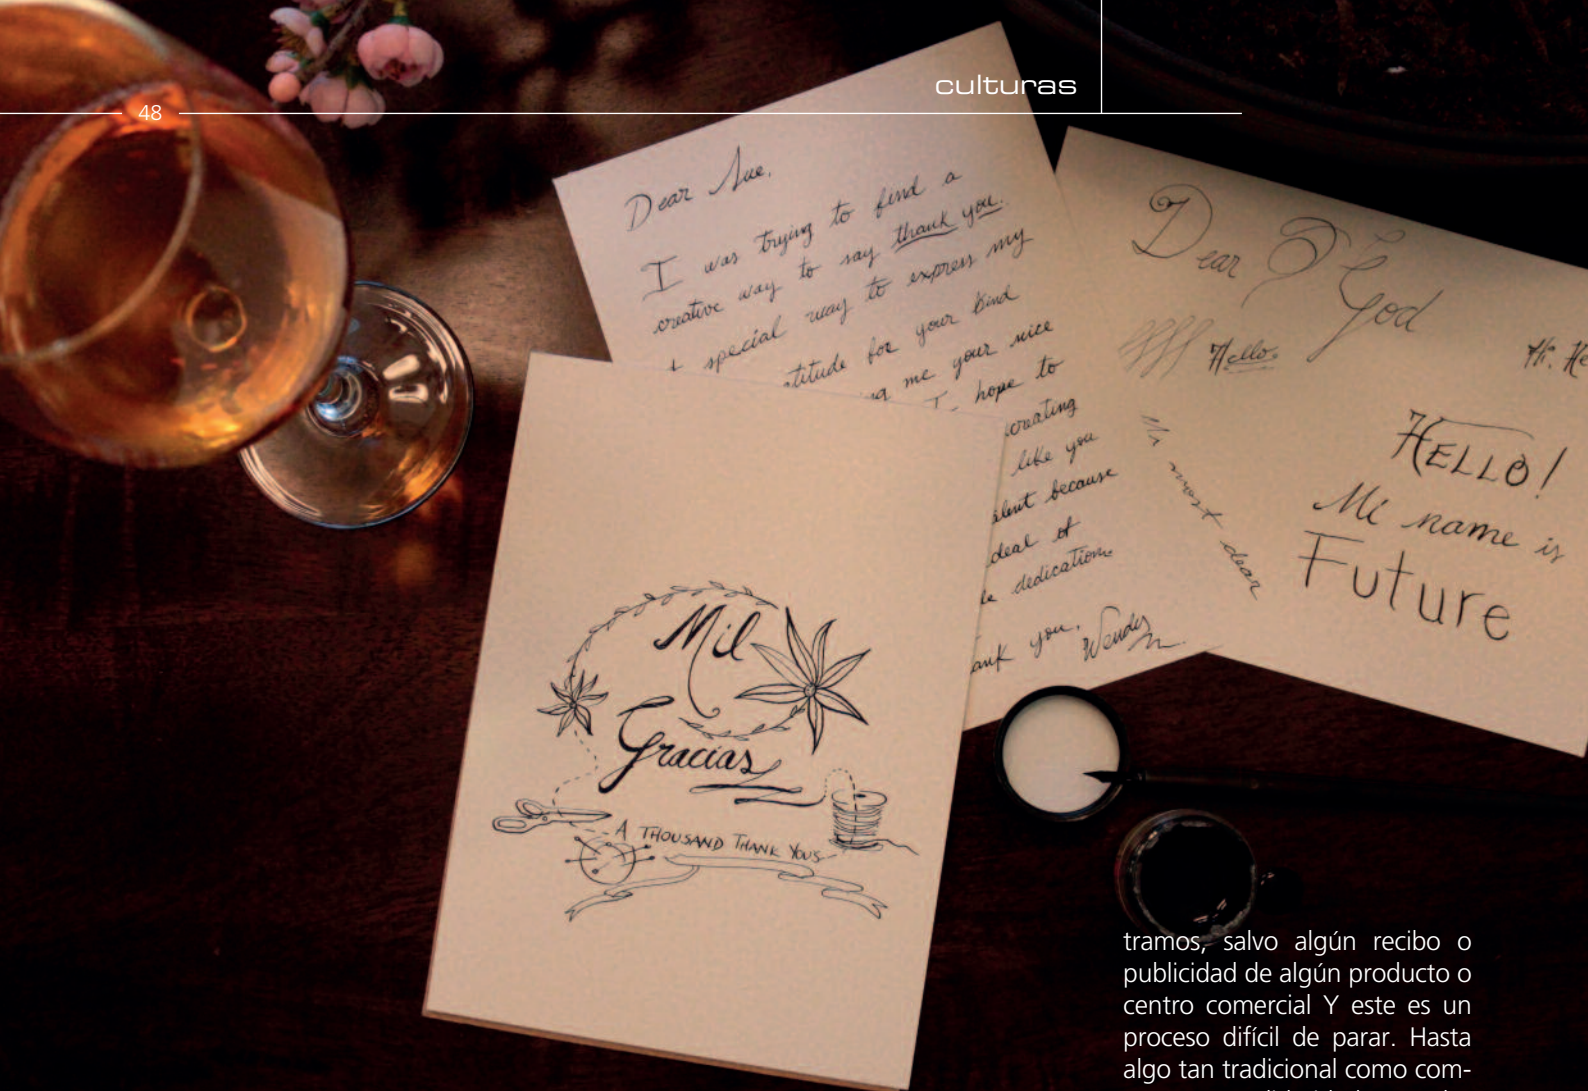 culturas
48
Dear Sue,
I was trying to find a
creative way to say thank you.
A special way to express my
titude for your kind
ng me your nice
I hope to
creating
like you
alent because
deal of
le dedication.
ank you,
Wendy
Dear God
Hello.
Hi. He
HELLO!
Mi name is
Future
Mr most dear
Mil
Gracias
A THOUSAND THANK YOUS
tramos, salvo algún recibo o
publicidad de algún producto o
centro comercial Y este es un
proceso difícil de parar. Hasta
algo tan tradicional como com-